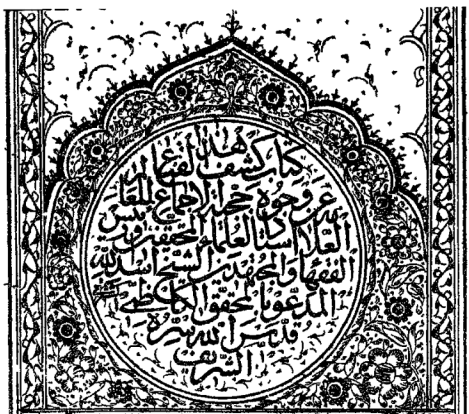 هذا
كتاب كشف القناع
عن وجوه حجية الاجماع للعالم
العلامة استاد العلماء المحققين ورئيس
الفقهاء والمجتهدين الشيخ اسد الله
المدعو بالمحقق الكاظمي
قدس الله سره
الشريف